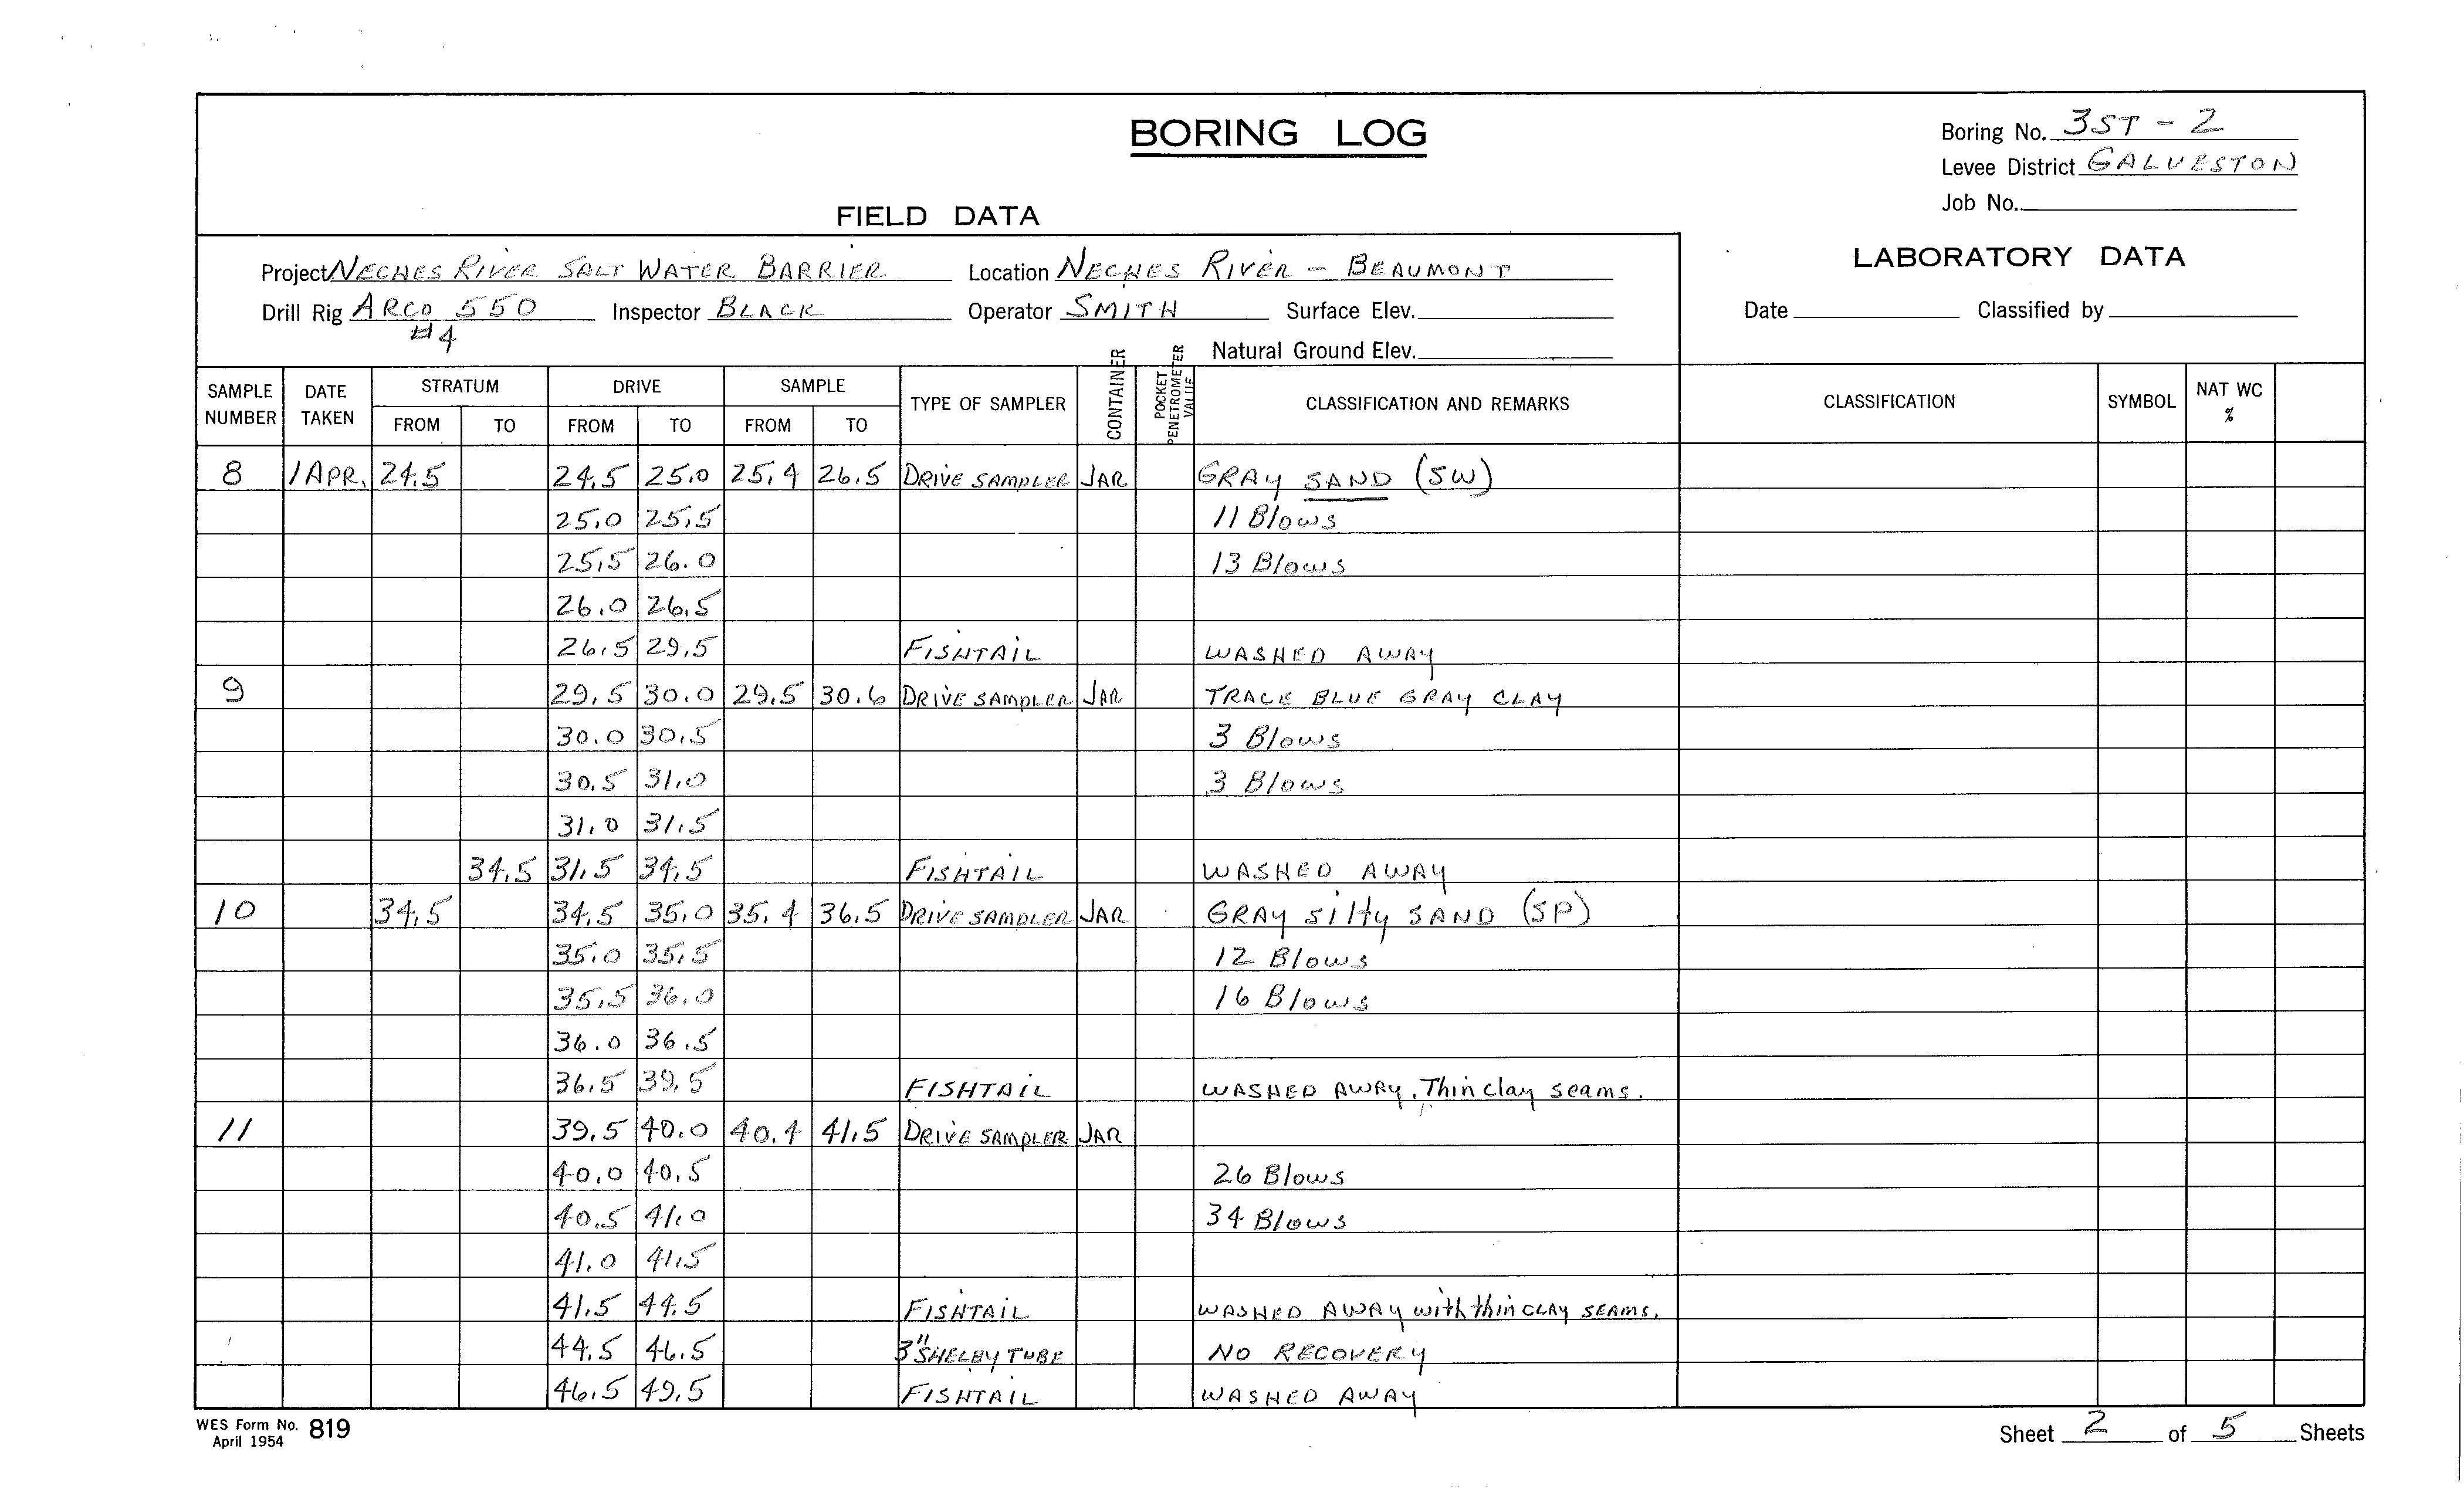 BORING LOG
Boring No. 3ST - 2
Levee District GALVESTON
Job No.
FIELD DATA
LABORATORY DATA
Project NECHES RIVER SALT WATER BARRIER Location NECHES RIVER - BEAUMONT
Drill Rig ARCO 550 Inspector BLACK Operator SMITH Surface Elev. Date Classified by
#4
Natural Ground Elev.
SAMPLE NUMBER DATE TAKEN STRATUM FROM TO DRIVE FROM TO SAMPLE FROM TO TYPE OF SAMPLER CONTAINER POCKET PENETROMETER VALUE CLASSIFICATION AND REMARKS CLASSIFICATION SYMBOL NAT WC %
8 1 APR. 24.5 24.5 25.0 25.4 26.5 DRIVE SAMPLER JAR GRAY SAND (SW)
25.0 25.5 11 Blows
25.5 26.0 13 Blows
26.0 26.5
26.5 29.5 FISHTAIL WASHED AWAY
9 29.5 30.0 29.5 30.6 DRIVE SAMPLER JAR TRACE BLUE GRAY CLAY
30.0 30.5 3 Blows
30.5 31.0 3 Blows
31.0 31.5
34.5 31.5 34.5 FISHTAIL WASHED AWAY
10 34.5 34.5 35.0 35.4 36.5 DRIVE SAMPLER JAR GRAY silty SAND (SP)
35.0 35.5 12 Blows
35.5 36.0 16 Blows
36.0 36.5
36.5 39.5 FISHTAIL WASHED AWAY. Thin clay seams.
11 39.5 40.0 40.4 41.5 DRIVE SAMPLER JAR
40.0 40.5 26 Blows
40.5 41.0 34 Blows
41.0 41.5
41.5 44.5 FISHTAIL WASHED AWAY with thin CLAY SEAMS.
44.5 46.5 3" SHELBY TUBE NO RECOVERY
46.5 49.5 FISHTAIL WASHED AWAY
WES Form No. 819
April 1954
Sheet 2 of 5 Sheets